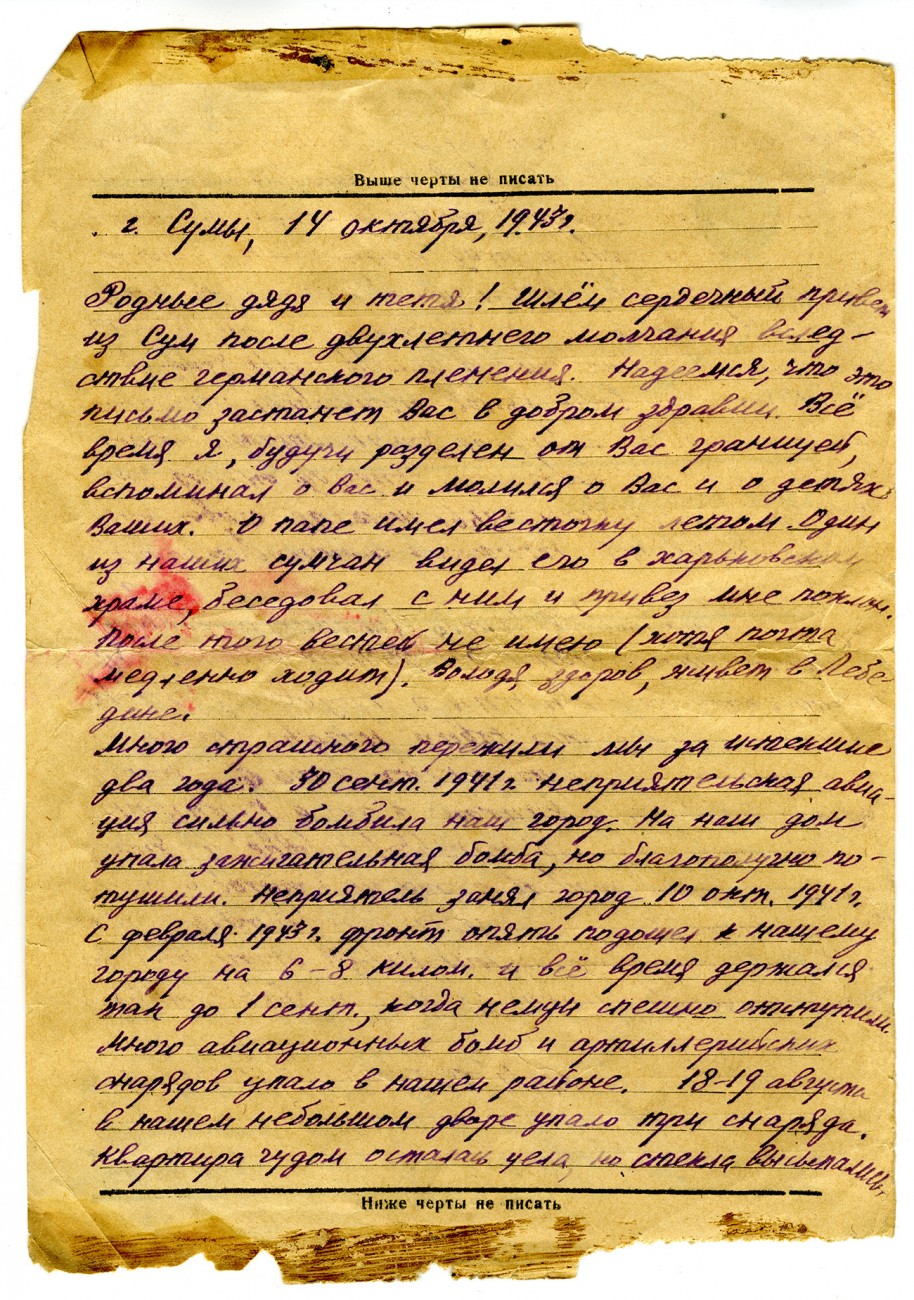 Выше черты не писать
г. Сумы, 14 октября, 1943 г.
Родные дядя и тетя! Шлём сердечный привет
из Сум после двухлетнего молчания вслед-
ствие германского пленения. Надеемся, что это
письмо застанет Вас в добром здравии. Всё
время я, будучи разделен от Вас границей,
вспоминал о Вас и молился о Вас и о детях
Ваших. О папе имел весточку летом. Один
из наших сумчан видел его в харьковском
храме, беседовал с ним и привез мне поклон.
После того вестей не имею (хотя почта
медленно ходит). Володя здоров, живет в Лебе-
дине.
Много страшного пережили мы за истекшие
два года. 30 сент. 1941 г. неприятельская авиа-
ция сильно бомбила наш город. На наш дом
упала зажигательная бомба, но благополучно по-
тушили. Неприятель занял город 10 окт. 1941 г.
С февраля 1943 г. фронт опять подошел к нашему
городу на 6-8 килом. и всё время держался
так до 1 сент., когда немцы спешно отступили.
Много авиационных бомб и артиллерийских
снарядов упало в нашем районе. 18-19 августа
в нашем небольшом дворе упало три снаряда.
Квартира чудом осталась цела, но стекла высыпались.
Ниже черты не писать